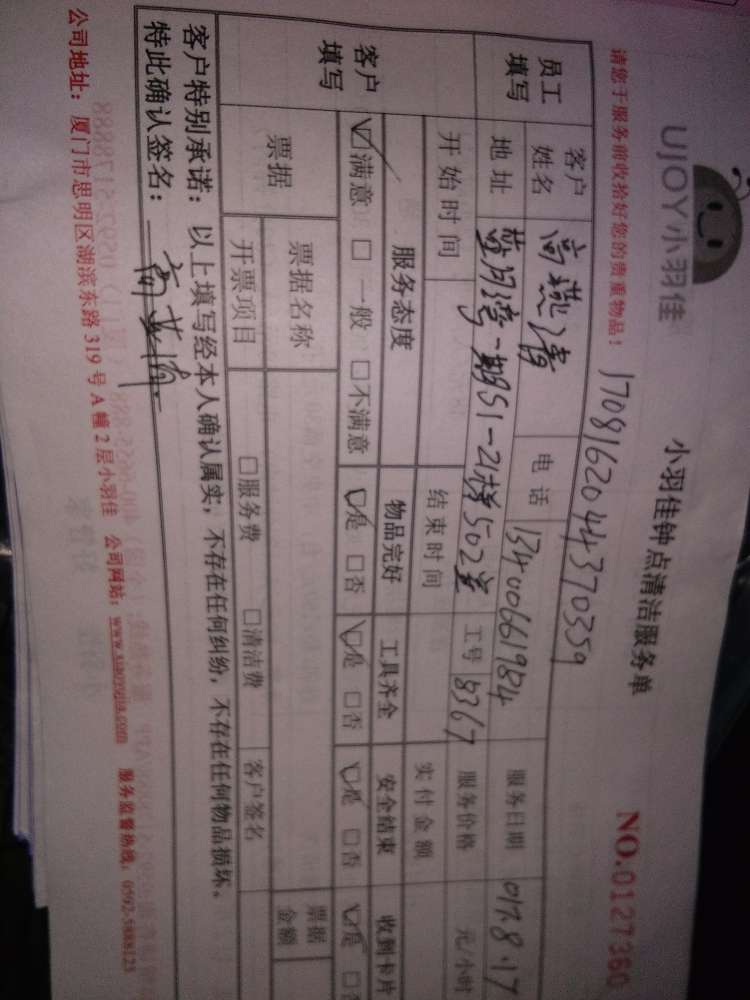 UJOY小羽佳
小羽佳钟点清洁服务单
NO.0127360
请您于服务前收拾好您的贵重物品!
1708162044370359
员工填写
客户姓名 高燕清 电话 13400661984 服务日期 017.8.17
地址 蓝月湾一期851-21栋502室 工号 8367 服务价格 元/小时
开始时间 结束时间 实付金额
客户填写
服务态度 物品完好 工具齐全 安全结束 收到卡片
☑满意 □一般 □不满意 ☑是 □否 ☑是 □否 ☑是 □否 ☑是 □否
票据 票据名称 票据金额
开票项目 □服务费 □清洁费 客户签名
客户特别承诺:以上填写经本人确认属实,不存在任何纠纷,不存在任何物品损坏。
特此确认签名:
公司地址:厦门市思明区湖滨东路319号A幢2层小羽佳 公司网站:www.xiaoyujia.com 服务监督热线:0592-5888123